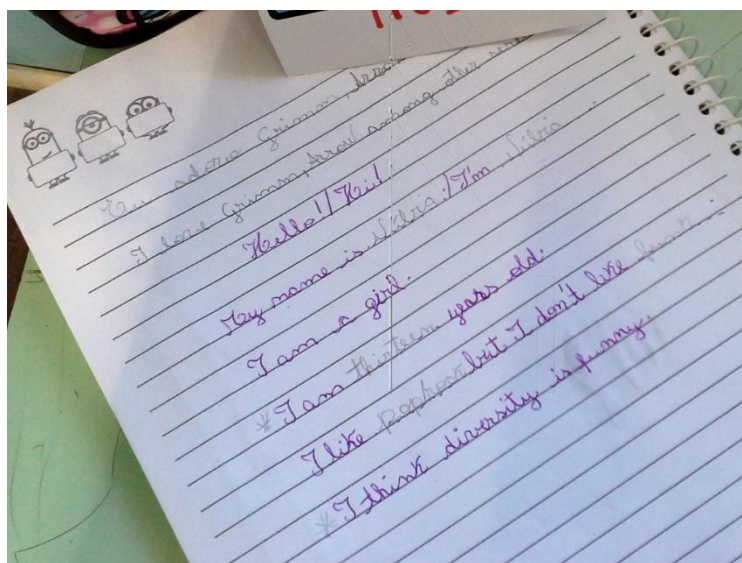 Eu adoro Grimm, Arrow
I love Grimm, Arrow among other
Hello!/Hi!
My name is Núbia./I'm Núbia
I am a girl.
*I am thirteen years old.
I like but I don't like funk
*I think diversity is funny.